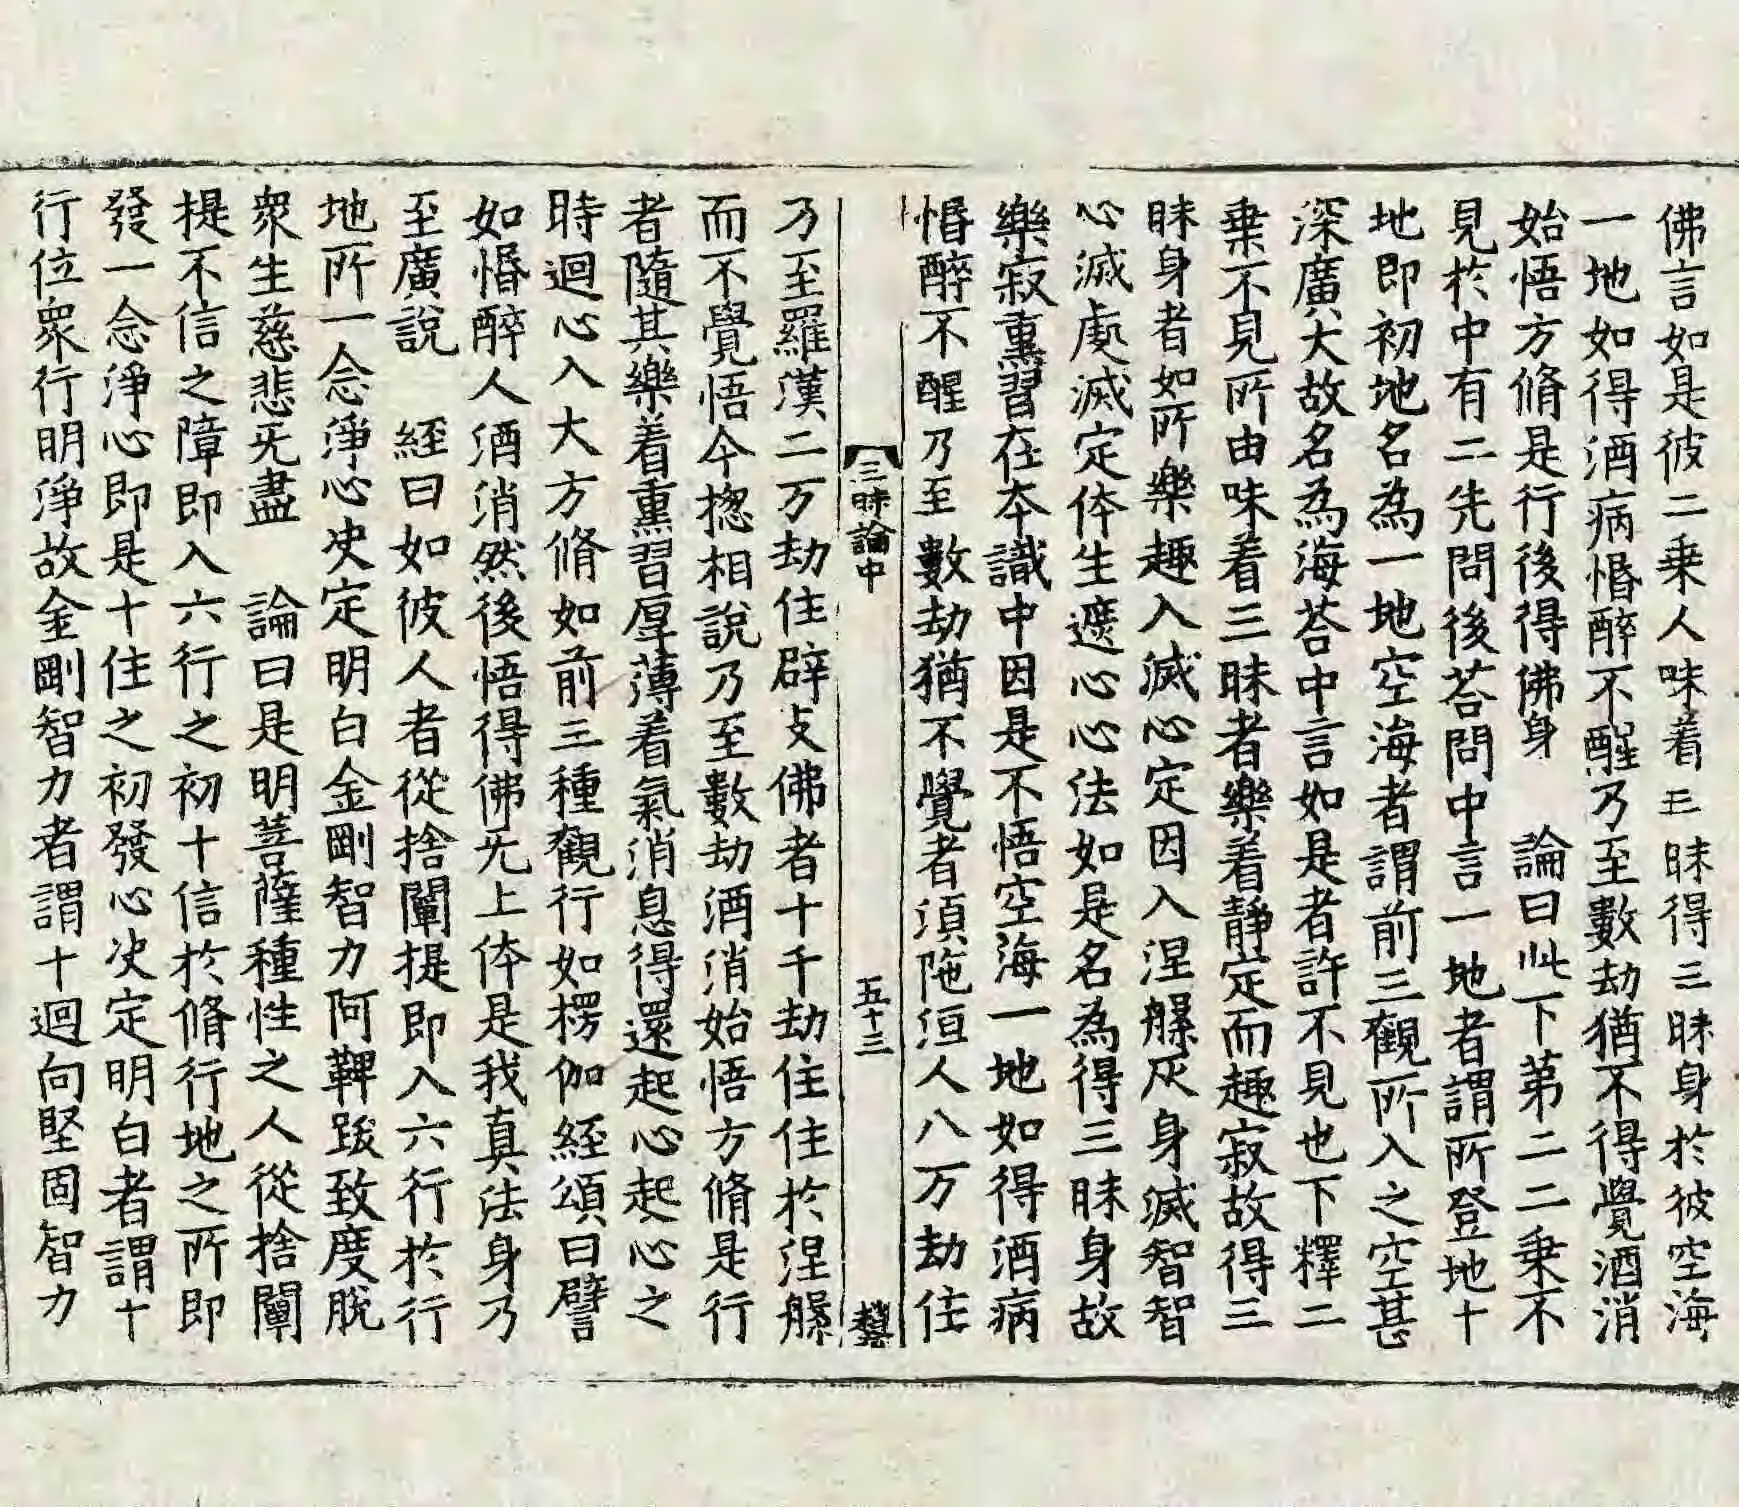 佛言如是彼二乗人味着三昧得三昧身於彼空海
一地如得酒病惛醉不醒乃至數劫猶不得覺酒消
始悟方脩是行後得佛身　論曰此下第二二乗不
見於中有二先問後荅問中言一地者謂所登地十
地即初地名為一地空海者謂前三觀所入之空甚
深廣大故名為海荅中言如是者許不見也下釋二
乗不見所由味着三昧者樂着靜定而趣寂故得三
昧身者如所樂趣入滅心定因入涅槃灰身滅智智
心滅處滅定体生遮心心法如是名為得三昧身故
樂寂熏習在本識中因是不悟空海一地如得酒病
惛醉不醒乃至數劫猶不覺者湏陁洹人八万劫住
三昧論中　五十三
乃至羅漢二万劫住辟支佛者十千劫住住於涅槃
而不覺悟今揔相說乃至數劫酒消始悟方脩是行
者隨其樂着熏習厚薄着氣消息得還起心起心之
時迴心入大方脩如前三種觀行如楞伽經頌曰譬
如惛醉人酒消然後悟得佛无上体是我真法身乃
至廣說　經曰如彼人者從捨闡提即入六行於行
地所一念淨心决定明白金剛智力阿鞞跋致度脫
衆生慈悲无盡　論曰是明菩薩種性之人從捨闡
提不信之障即入六行之初十信於脩行地之所即
發一念淨心即是十住之初發心决定明白者謂十
行位衆行明淨故金剛智力者謂十迴向堅固智力